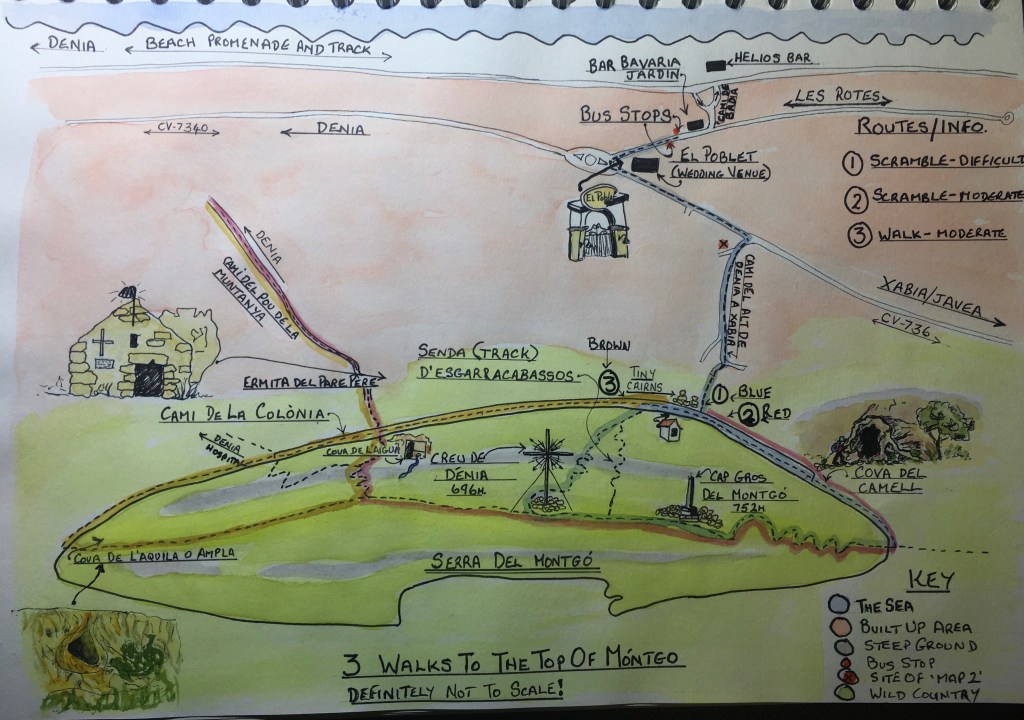 DENIA
BEACH PROMENADE AND TRACK
BAR BAVARIA
JARDIN
HELIOS BAR
CAMI DE
BADIA
LES ROTES
BUS STOPS
CV-7340
DENIA
EL POBLET
(WEDDING VENUE)
El Poblet
ROUTES/INFO.
1 SCRAMBLE-DIFFICULT
2 SCRAMBLE-MODERATE
3 WALK-MODERATE
DENIA
CAMI DEL POU DE LA
MUNTANYA
CAMI DEL ALT DE
DENIA A XABIA
XABIA/JAVEA
CV-736
ERMITA DEL PARE PERE
SENDA (TRACK)
D'ESGARRACABASSOS
BROWN
3
TINY
CAIRNS
1 BLUE
2 RED
CAMI DE LA COLÒNIA
DENIA
HOSPITAL
COVA DE L'AIGUA
CREU DE
DENIA
696M.
CAP GROS
DEL MONTGÓ
752M
COVA DEL
CAMELL
COVA DE L'AQUILA O AMPLA
SERRA DEL MONTGÓ
KEY
THE SEA
BUILT UP AREA
STEEP GROUND
BUS STOP
SITE OF 'MAP 2'
WILD COUNTRY
3 WALKS TO THE TOP OF MÓNTGO
DEFINITELY NOT TO SCALE!